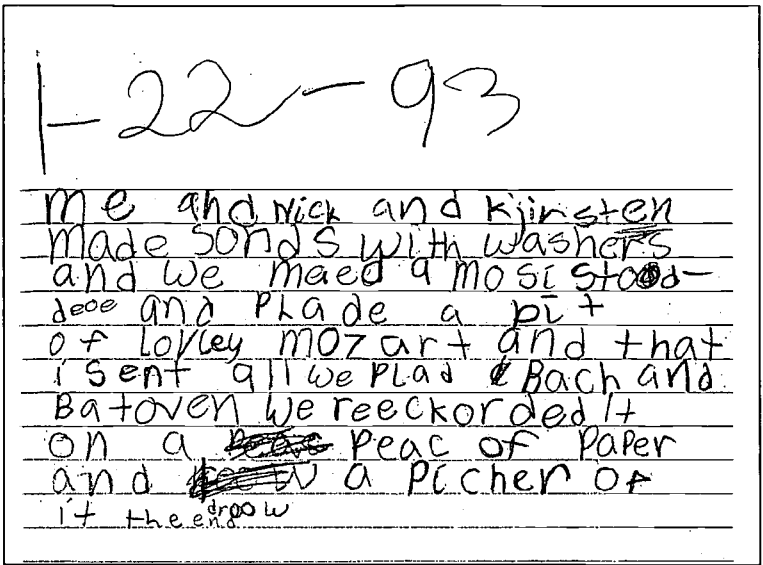 1-22-93
me and Nick and Kjirsten
made sonds with washers
and we maed a mosi stood-
deoe and PLade a pit
of Lovley mozart and that
isent all we PLad Bach and
Batoven We reeckorded It
on a Peac of Paper
and a Picher of
it the end droow